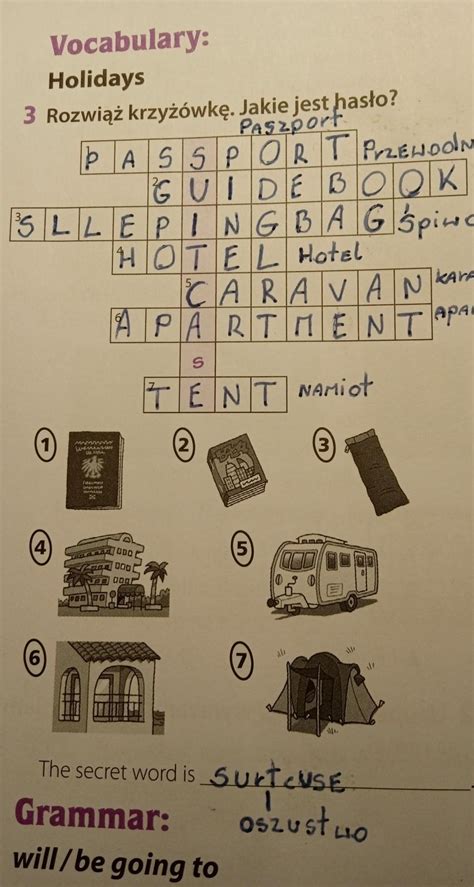 Vocabulary:
Holidays
3 Rozwiąż krzyżówkę. Jakie jest hasło?
PASZPORT
1 PASSPORT PRZEWODN
2 GUIDEBOOK
3 SLLEPINGBAG Śpiwo
4 HOTEL Hotel
5 CARAVAN KARA
6 APARTMENT APAR
s
7 TENT NAMIOT
1 2 3
4 5
6 7
The secret word is surtcuse
oszustwo
Grammar:
will / be going to